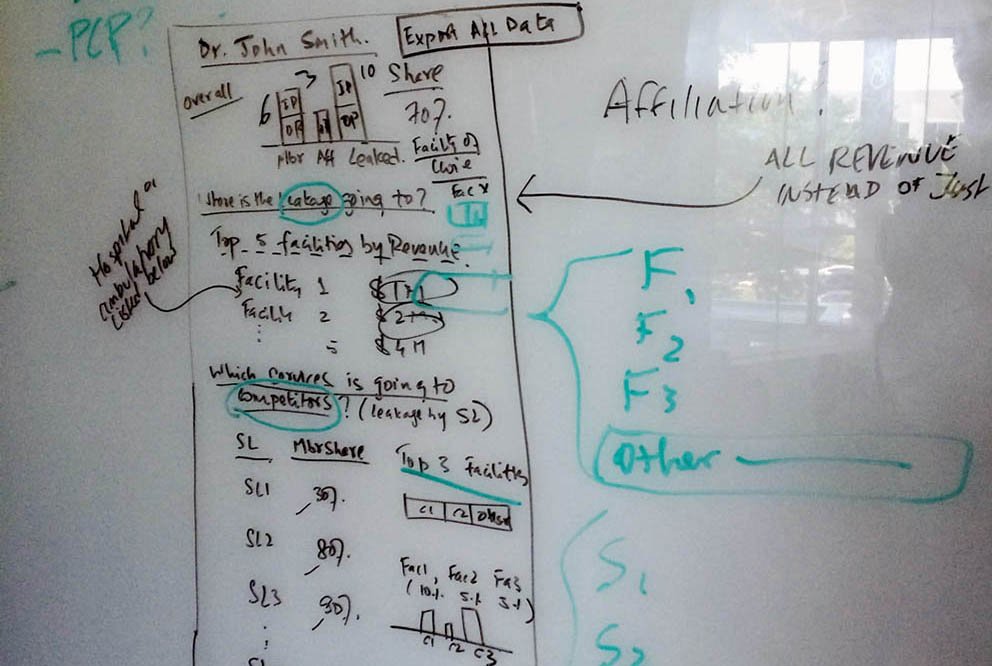 - PCP?
Dr. John Smith.
Export All Data
overall
6
3
10
IP
OP
IP
OP
Mbr Aff Leaked.
Share
70%.
Facility of
Fac X
Affiliation:
ALL REVENUE
INSTEAD OF Just
Where is the leakage going to?
Top 5 facilities by Revenue.
Hospital or
ambulatory
listed below
Facility 1
Facility 2
5 $4M
Which services is going to
Competitors? (leakage by SL)
SL MbrShare Top 3 facilities
SL1 30%.
C1 C2 Other
SL2 80%.
SL3 90%.
Fac1, Fac2 Fac3
(10% 5% 5%)
C1 C2 C3
F1
F2
F3
Other
S1
S2